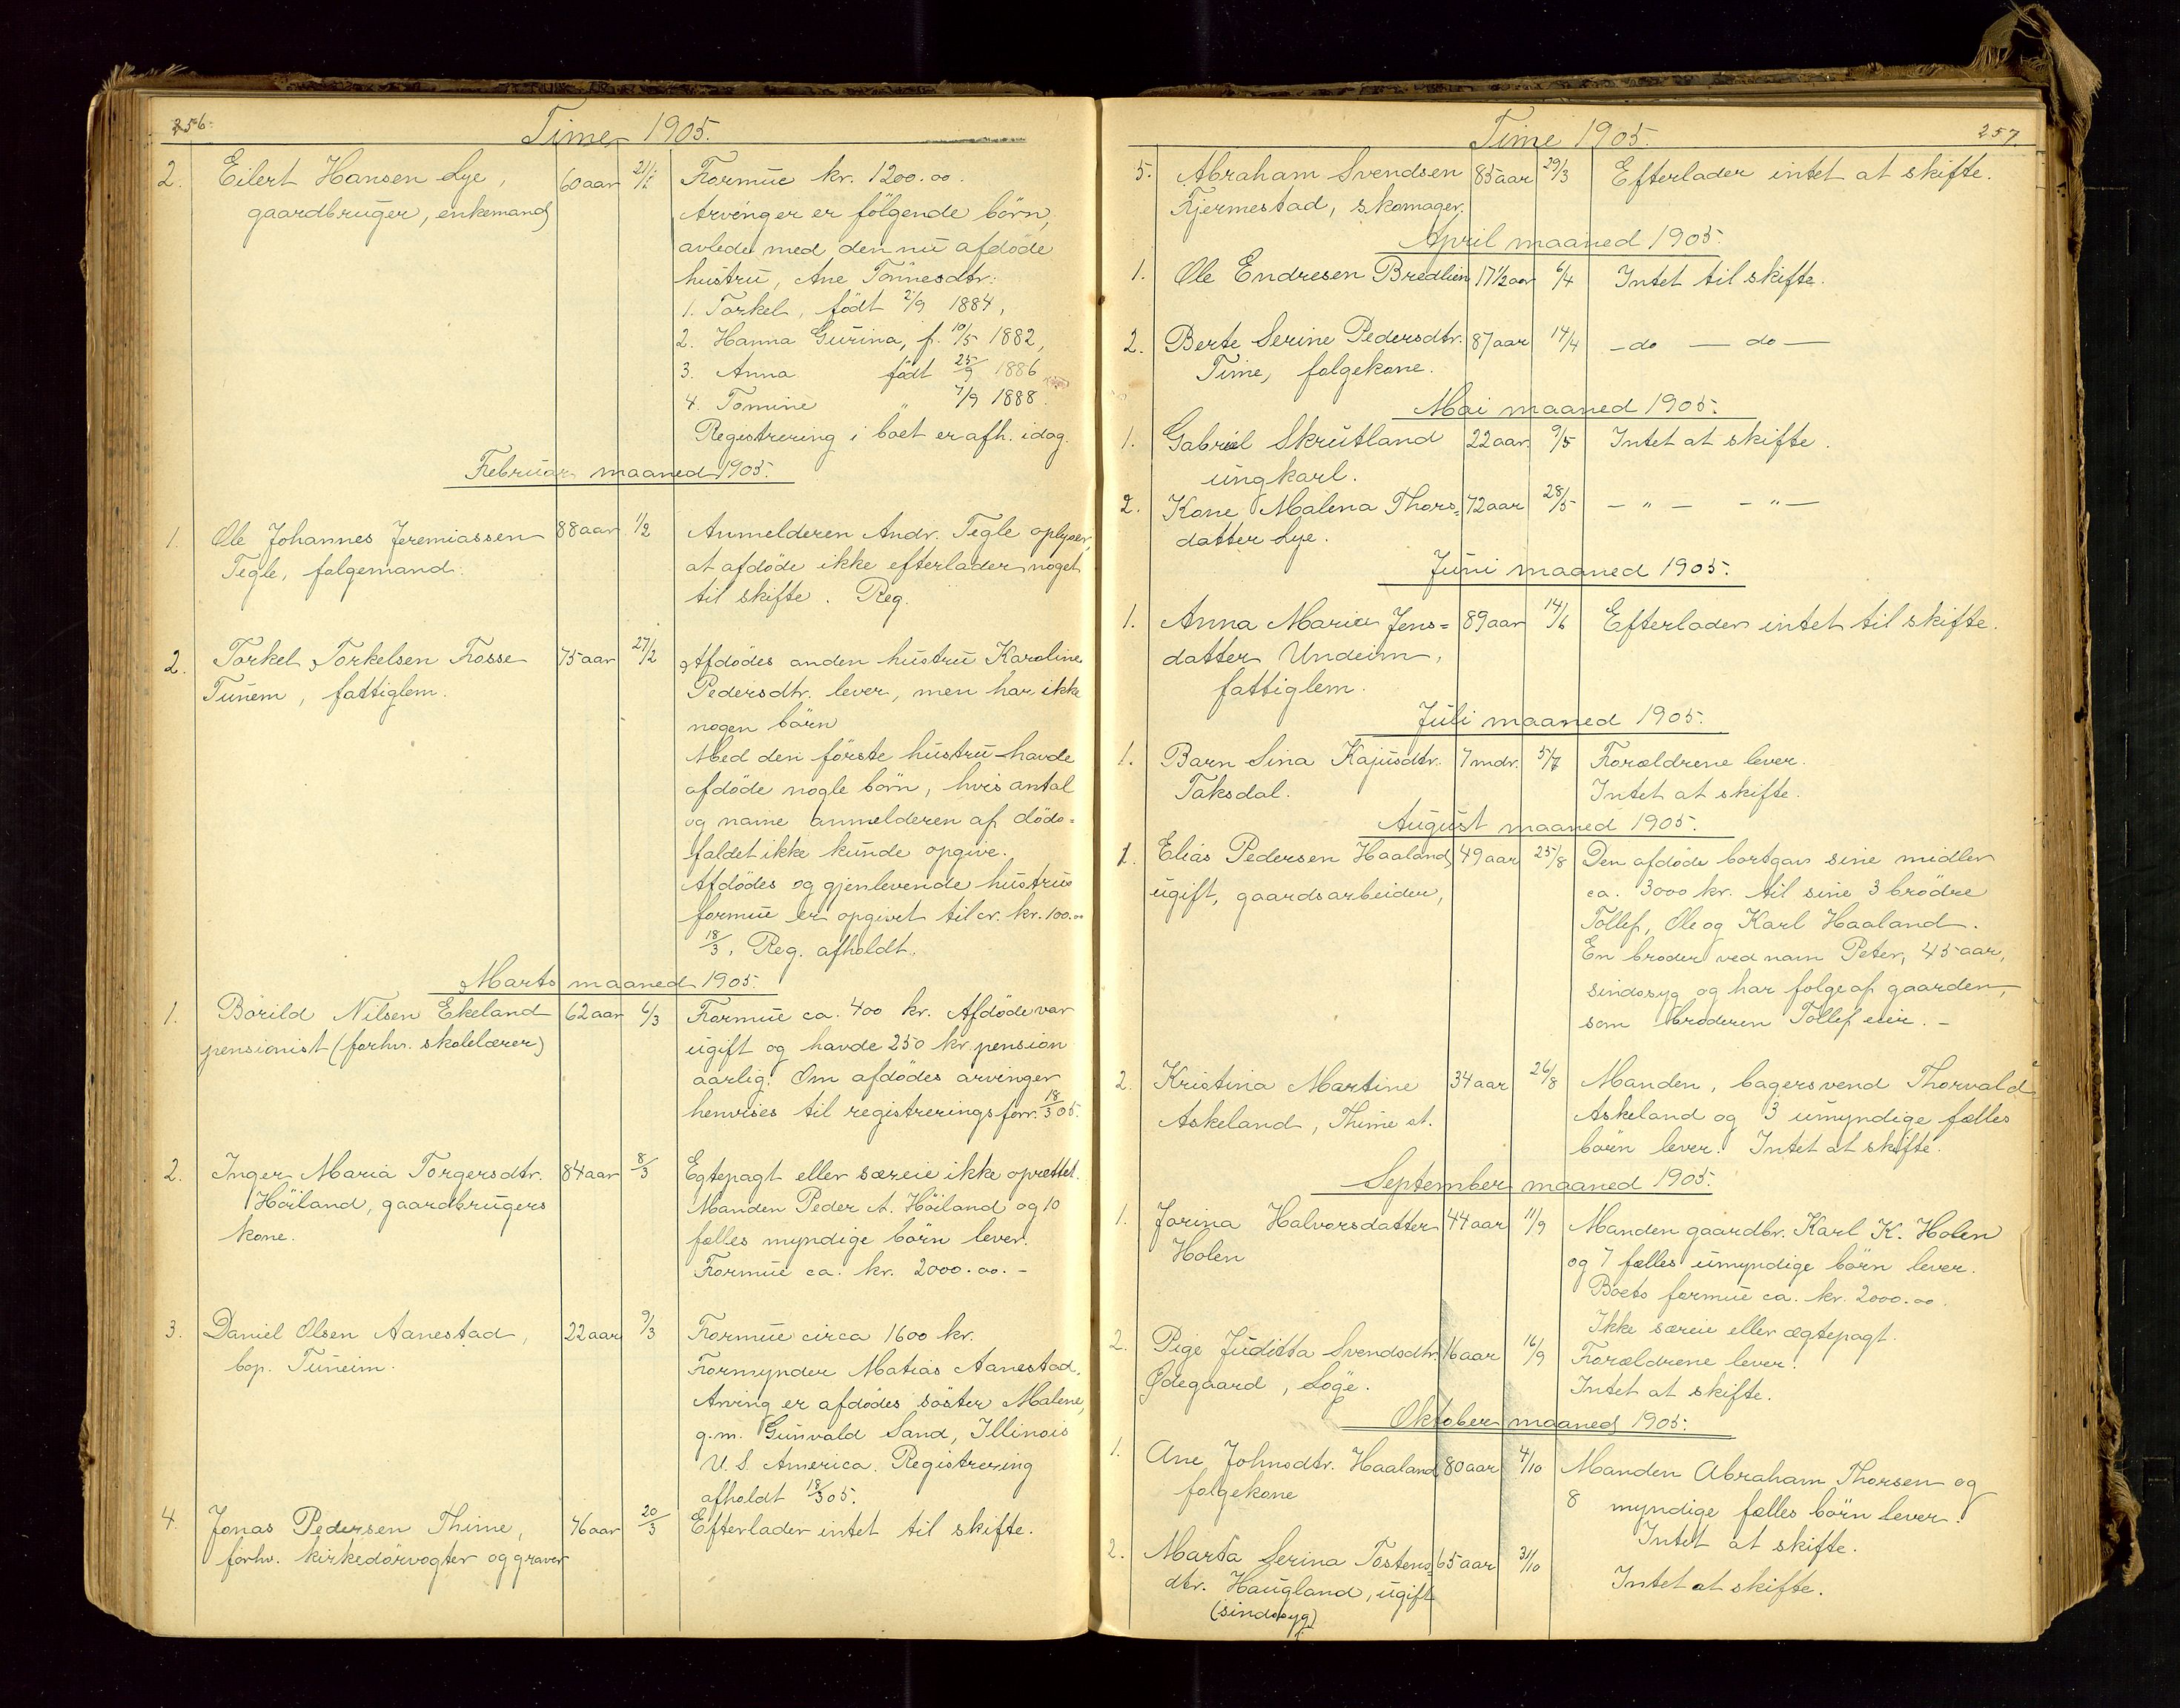 256.
Time 1905.
2. Eilert Hansen Lye, 60 aar 21/1 Formue kr. 1200.00.
gaardbruger, enkemand Arvinger er følgende børn,
avlede med den nu afdøde
hustru, Ane Tønnesdtr.
1. Torkel, født 2/9 1884,
2. Hanna Gurina, f. 10/5 1882,
3. Anna født 25/9 1886
4. Tomine " 7/9 1888.
Regestrering i boet er afh. idag.
Februar maaned 1905.
1. Ole Johannes Jeremiassen 88 aar 1/2 Anmelderen Andr. Tegle oplyser,
Tegle, folgemand. at afdøde ikke efterlader noget
til skifte. Reg.
2. Torkel Torkelsen Fosse 75 aar 27/2 Afdødes anden hustru Karoline
Tunem, fattiglem. Pedersdtr. lever, men har ikke
nogen børn
Med den første hustru havde
afdøde nogle børn, hvis antal
og name anmelderen af døds=
faldet ikke kunde opgive.
Afdødes og gjenlevende hustrus
formue er opgivet til cr. kr. 100.00
18/3. Reg. afholdt.
Marts maaned 1905.
1. Borild Nilsen Ekeland 62 aar 6/3 Formue ca. 400 kr. Afdøde var
pensionist (forhv. skolelærer) ugift og havde 250 kr. pension
aarlig. Om afdødes arvinger
henvises til registreringsforr. 18/3 05.
2. Inger Maria Torgersdtr. 84 aar 8/3 Egtepagt eller særeie ikke oprettet.
Höiland, gaardbrugers Manden Peder A. Höiland og 10
kone. fælles myndige børn lever.
Formue ca. kr. 2000.00.-
3. Daniel Olsen Aanestad, 22 aar 9/3 Formue circa 1600 kr.
bop. Tuneim. Formynder Matias Aanestad.
Arving er afdødes søster Malene,
g.m. Gunvald Sand, Illinois
U.S. America. Registrering
afholdt 18/3 05.
4. Jonas Pedersen Thime, 76 aar 20/3 Efterlader intet til skifte.
forhv. kirkedørvogter og graver
257
Time 1905.
5. Abraham Svendsen 85 aar 29/3 Efterlader intet at skifte.
Fjermestad, skomager.
April maaned 1905.
1. Ole Endresen Bredlien 17 1/2 aar 6/4 Intet til skifte.
2. Berte Serine Pedersdtr. 87 aar 14/4 - do - do -
Time, folgekone.
Mai maaned 1905.
1. Gabriel Skrutland 22 aar 9/5 Intet at skifte.
ungkarl.
2. Kone Malena Thors= 72 aar 28/5 - " - - " -
datter Lye.
Juni maaned 1905.
1. Anna Maria Jens= 89 aar 14/6 Efterlader intet til skifte.
datter Undeim,
fattiglem.
Juli maaned 1905.
1. Barn Sina Kajusdtr. 7 mdr. 5/7 Forældrene lever.
Taksdal. Intet at skifte.
August maaned 1905.
1. Elias Pedersen Haaland 49 aar 25/8 Den afdøde bortgav sine midler
ugift, gaardsarbeider, ca. 3000 kr. til sine 3 brödre
Tollef, Ole og Karl Haaland.
En broder ved nam Peter, 45 aar,
sindssyg og har folge af gaarden,
som broderen Tollef eier. -
2. Kristina Martine 34 aar 26/8 Manden, bagersvend Thorvald
Askeland, Thime st. Askeland og 3 umyndige fælles
børn lever. Intet at skifte.
September maaned 1905.
1. Jorina Halvorsdatter 44 aar 11/9 Manden gaardbr. Karl K. Holen
Holen og 7 fælles umyndige børn lever.
Boets formue ca. kr. 2000.00.
Ikke særeie eller ægtepagt.
2. Pige Juditta Svendsdtr. 16 aar 16/9 Forældrene lever.
Ødegaard, Löge. Intet at skifte.
Oktober maaned 1905.
1. Ane Johnsdtr. Haaland 80 aar 4/10 Manden Abraham Thorsen og
folgekone 8 myndige fælles børn lever.
Intet at skifte.
2. Marta Serina Tostens= 65 aar 31/10
dtr. Haugland, ugift Intet at skifte.
(sindssyg)